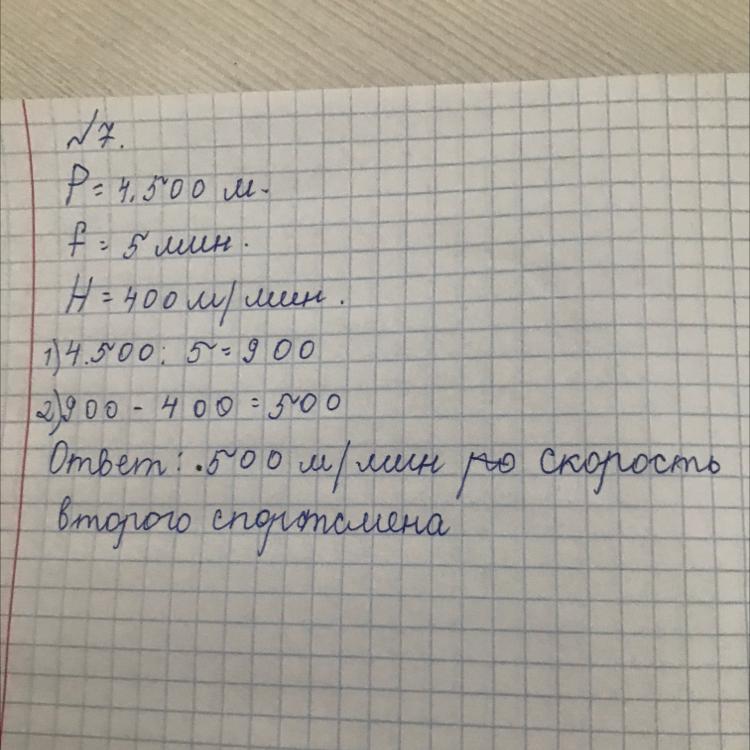 №7.
P = 4.500 м.
f = 5 мин.
H = 400 м/мин.
1) 4.500 : 5 = 900
2) 900 - 400 = 500
Ответ: .500 м/мин скорость
второго спортсмена